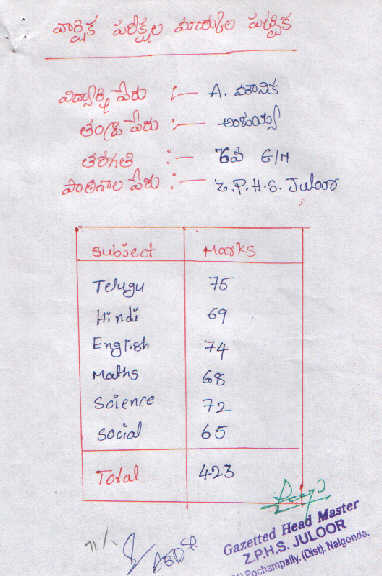 వార్షిక పరీక్షల మార్కుల పట్టిక
విద్యార్థి పేరు :— A.
తండ్రి పేరు :—
తరగతి :— 6వ E/M
పాఠశాల పేరు :— Z.P.H.S. Juloor
Subject Marks
Telugu 75
Hindi 69
English 74
Maths 68
Science 72
Social 65
Total 423
Gazetted Head Master
Z.P.H.S. JULOOR
Pochampally, (Dist). Nalgonda.